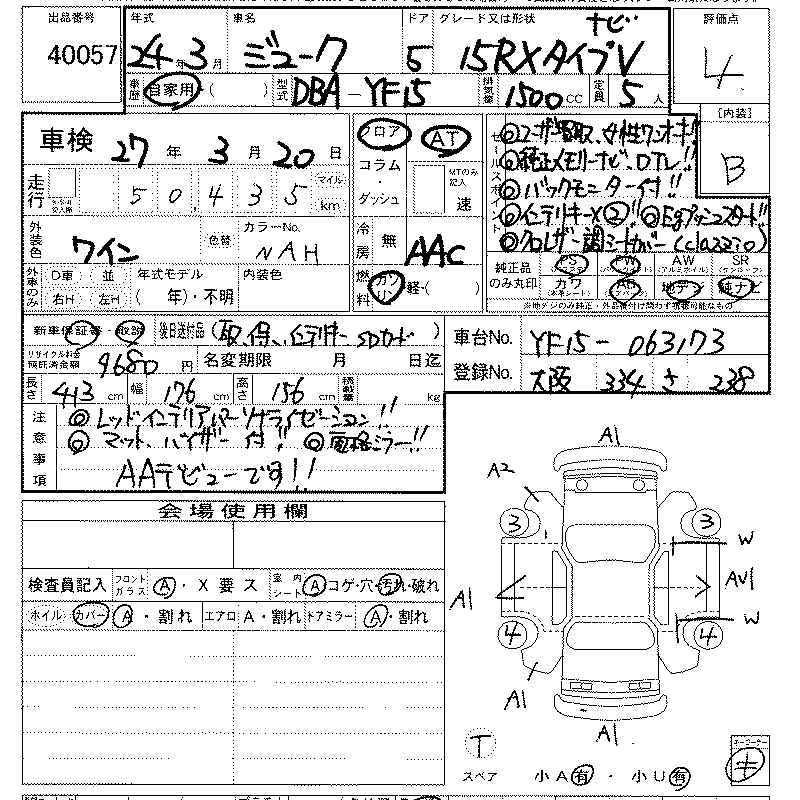 出品番号 年式 車名 ドア グレード又は形状 ナビ 評価点
40057 24年 3月 ジューク 5 15RXタイプV 4
車歴 自家用・( ) 型式 DBA-YF15 排気量 1500cc 定員 5人
[内装] B
車検 27年 3月 20日 フロア AT
セールスポイント
◎ユーザー買取、女性ワンオーナー!!
◎純正メモリーナビ、DTV!!
走行 50,435 マイル km コラム・ダッシュ MTのみ記入 速
◎バックモニター付!!
◎インテリキー×②!! ◎Egプッシュスタート!!
◎クロレザー調シートカバー(clazzio)
外装色 ワイン 色替 カラーNo. NAH 冷房 無 AAC
純正品のみ丸印 PS PW AW (アルミホイル) SR (サンルーフ)
カワ (本革シート) AB 地デジ 純ナビ
外車のみ D車 並 年式モデル 内装色
右H 左H ( 年)・不明 燃料 ガソリン 軽・( )
※地デジのみ純正・社外品着付け問わず視聴可能なもの
新車保証書・取説 後日送付品 (取、保、インテリキー SDカード)
車台No. YF15-063173
リサイクル料金預託済金額 9680円 名変期限 月 日迄
登録No. 大阪 334 さ 238
長さ 413cm 幅 176cm 高さ 156cm 積載量 kg
注意事項
◎レッドインテリアパーソナライゼーション!!
◎マット、バイザー付!! ◎電格ミラー!!
AAデビューです!!
会場使用欄
検査員記入 フロントガラス A・X要ス 室内シート A コゲ・穴・汚れ・破れ
ホイル カバー A・割れ エアロ A・割れ ドアミラー A・割れ
A1
A2
3 3
W
A1 AU1
W
4 4
A1
A1
T
スペア 小A有・小U有